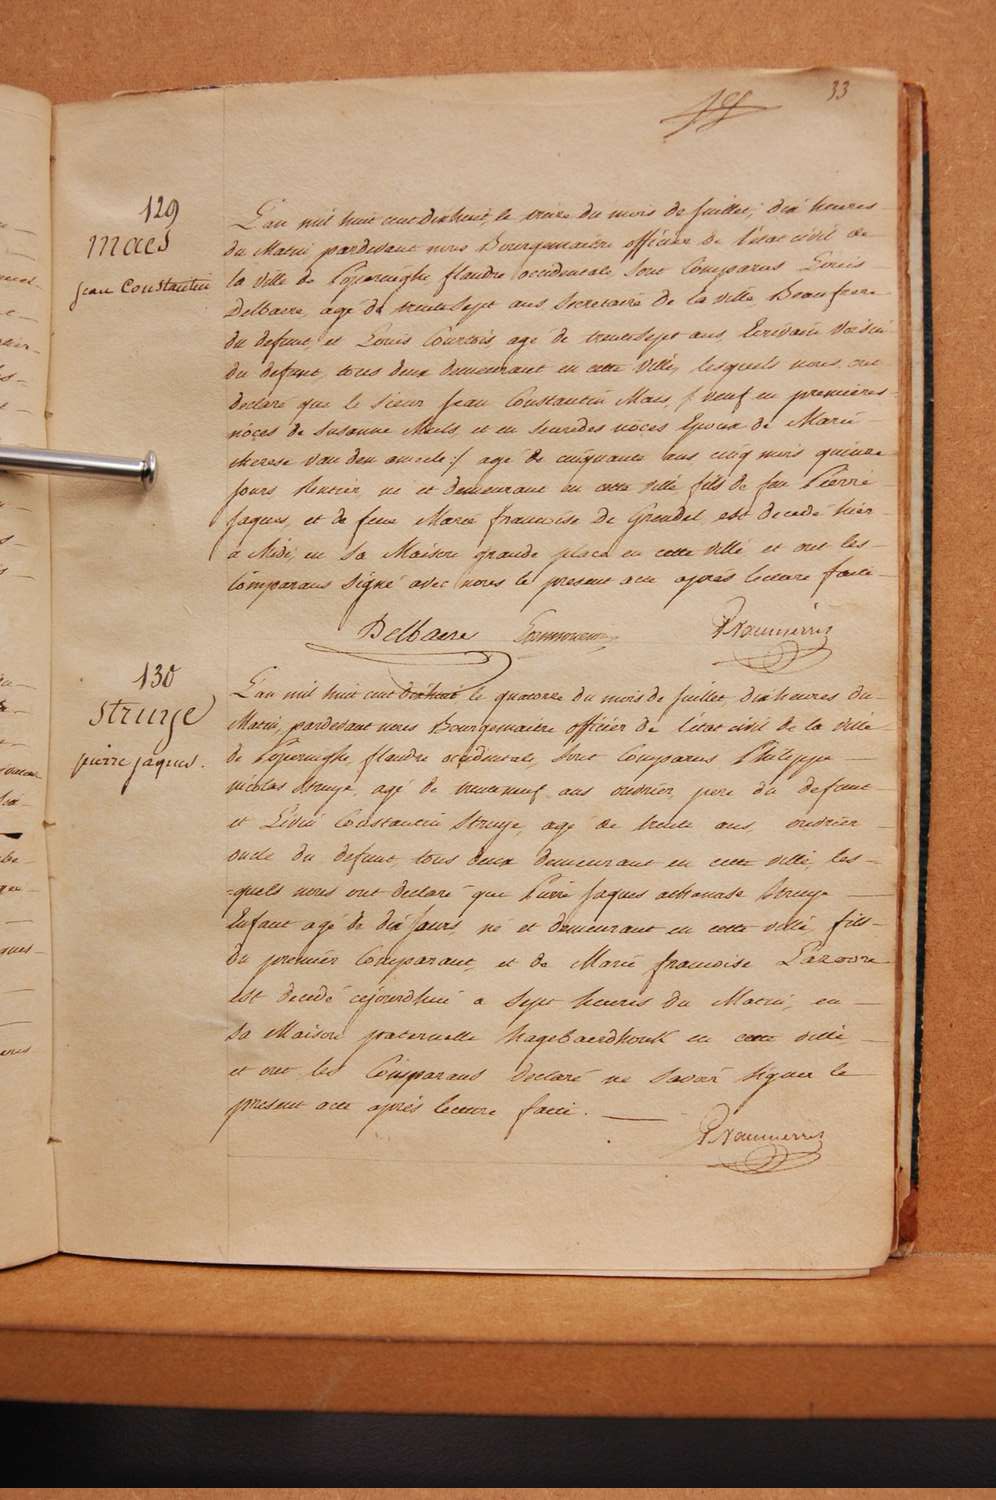 33
129
Maes
Jean Constantin
L'an mil huit cent dixhuit, le treize du mois de Juillet, dix heures
du Matin pardevant nous Bourguemaitre officier de l'état civil de
la ville de Poperinghe flandre occidentale sont Comparus Louis
Delbaere, agé de trentesept ans Secretaire de la ville Beaufrere
du defunt, et Louis Courtois agé de trentesept ans, Ecrivain Voisin
du defunt, tous deux demeurant en cette Ville, lesquels nous ont
declaré que le Sieur Jean Constantin Maes, /: veuf en premieres
nôces de Susanne Meels, et en secondes nôces Epoux de Marie
therese Van den :/ agé de cinquante ans cinq mois quinze
Jours, Rentier, né et demeurant en cette ville fils de feu Pierre
Jaques, et de feue Marie francoise De Grendel, est decedé hier
à Midi, en sa Maison grande place en cette ville et ont les
Comparans Signé avec nous le present acte après lecture faite
Delbaere
130
Struye
pierre jaques.
L'an mil huit cent dixhuit le quatorze du mois de Juillet, dix heures du
Matin, pardevant nous Bourguemaitre officier de l'état civil de la ville
de Poperinghe, flandre occidentale, sont Comparus Philippe
nicolas Struye, agé de trenteneuf ans ouvrier, pere du defunt
et Livin Constantin Struye, agé de trente ans, ouvrier
oncle du defunt, tous deux demeurant en cette ville, les-
-quels nous ont declaré que Pierre Jaques Struye
Enfant agé de dix Jours, né et demeurant en cette ville, fils
du premier Comparant, et de Marie francoise
est decedé cejourdhui a Sept heures du Matin, en
sa Maison paternelle hagebaerdhouk en cette ville,
et ont les Comparans declaré ne Savoir Signer le
present acte après lecture faite.